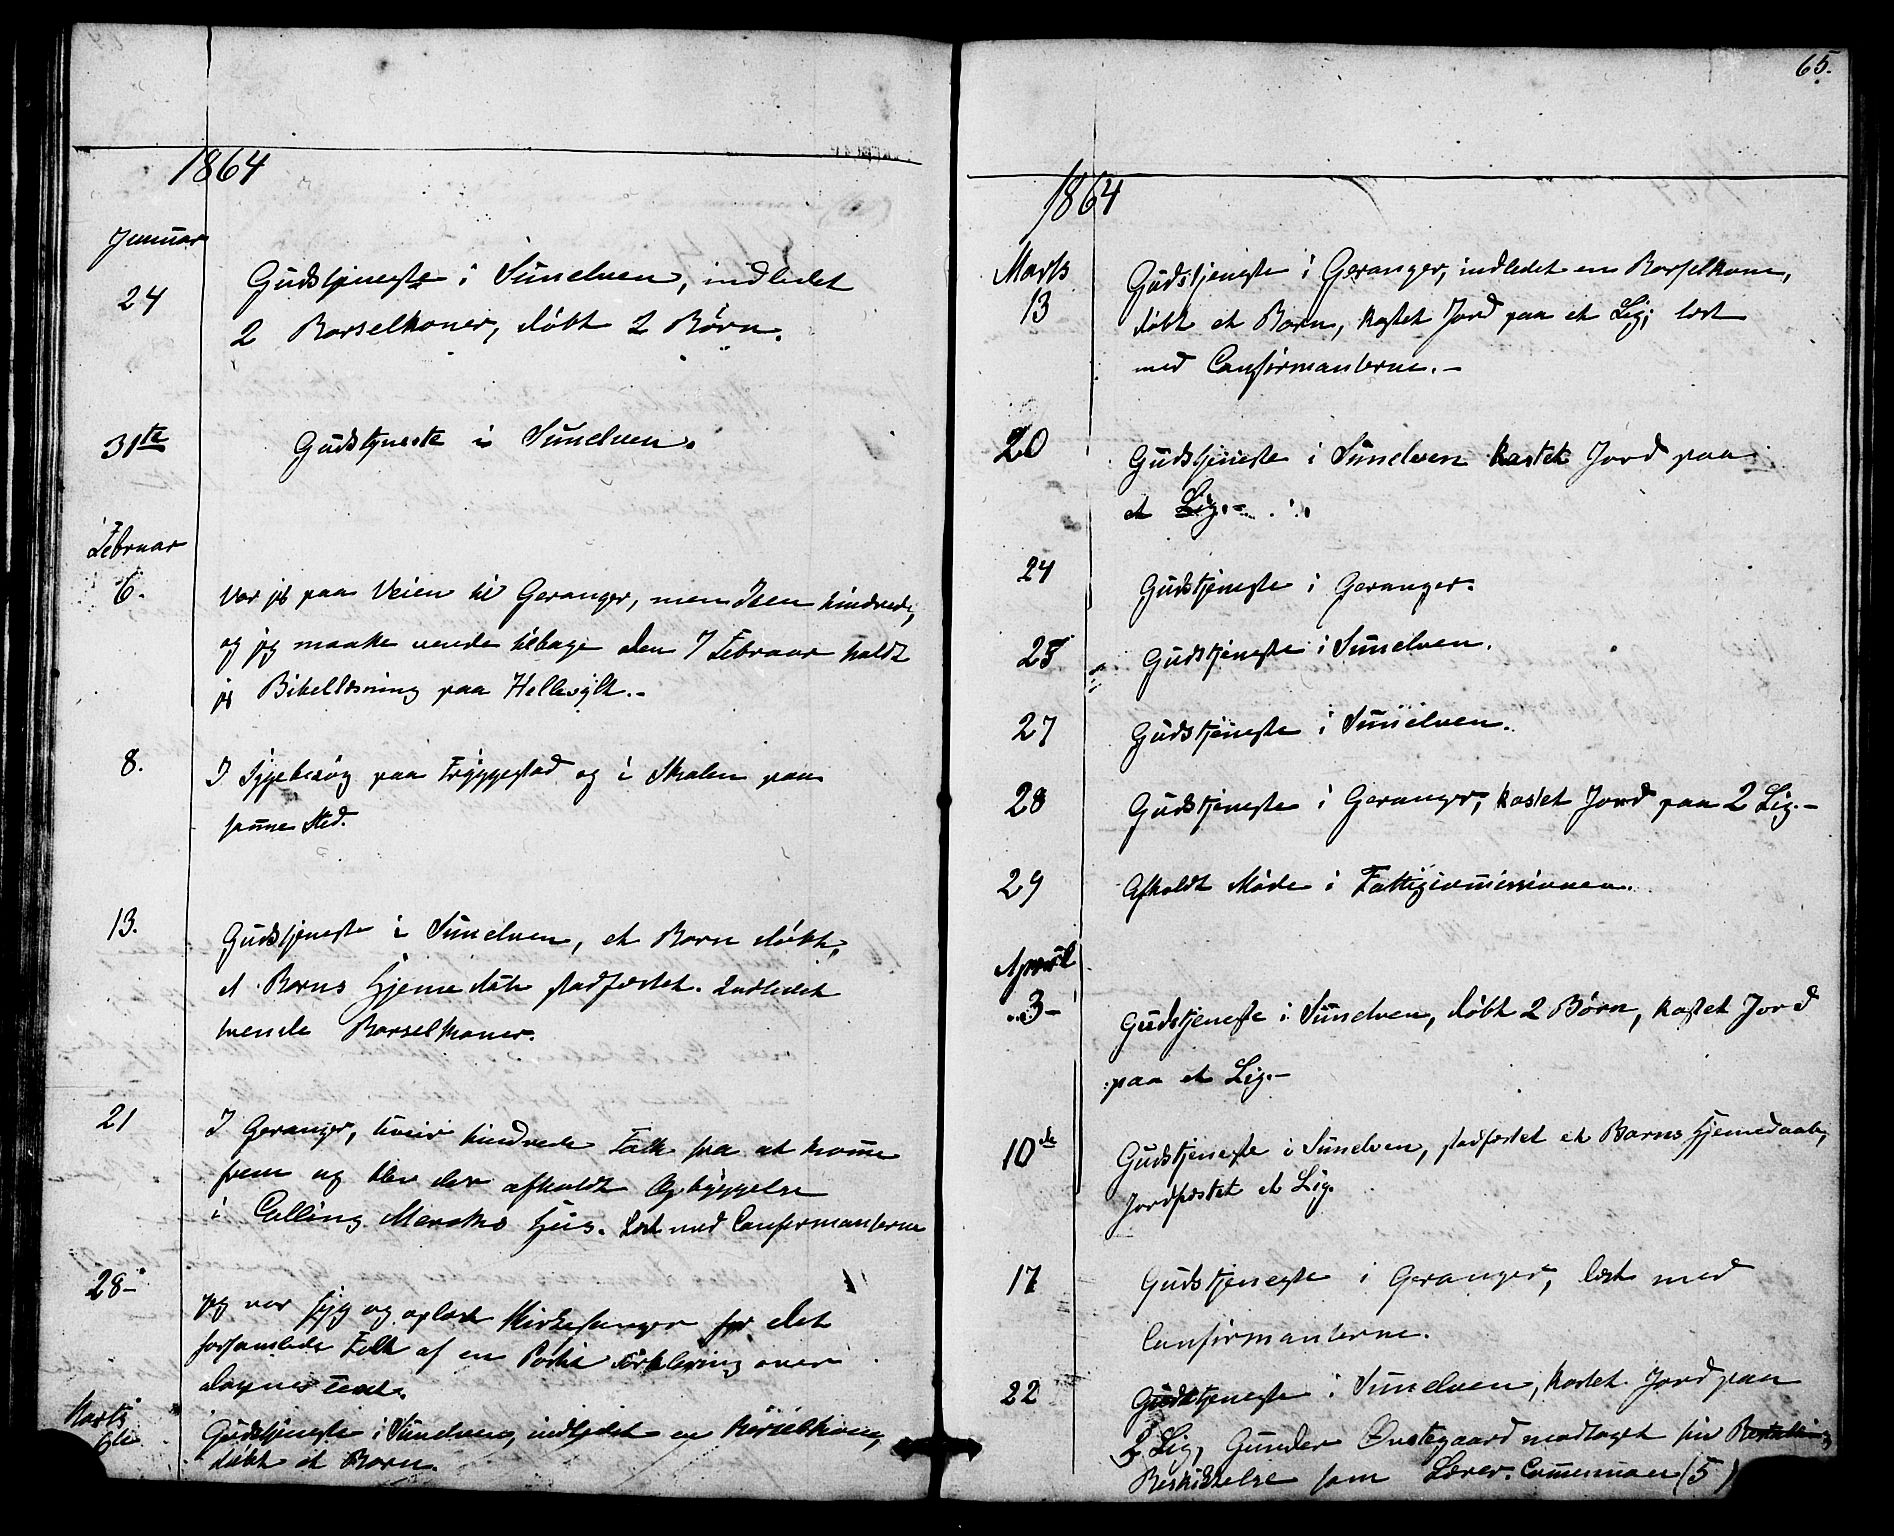 1864
Januar
24 Gudstjeneste i Sunelven, indledet
2 Barselkoner, døbt 2 Børn.
31te Gudstjeneste i Sunelven.
Februar
6. Var jeg paa Veien til Geranger, men Isen hindrede,
og jeg maatte vende tilbage den 7 Februar holdt
jeg Bibellæsning paa Hellesylt.-
8. I Sygebesøg paa Tryggestad og i Skolen paa
samme Sted.
13. Gudstjeneste i Sunelven, et Barn døbt,
et Barns Hjemmedaab stadfæstet. Indledet
tvende Barselkoner.
21 I Geranger, Uveir hindrede Folk fra at komme
frem og blev der afholdt Opbyggelse
i Colling Meraks Hus. Læst med Confirmanterne
28- jeg var syg og oplæste Kirkesanger for det
forsamlede Folk af en Postil Forklaring over
dagens Text.
Marts
6te Gudstjeneste i Sunelven, indledet en Barselkone,
døbt et Barn.
65.
1864
Marts
13 Gudstjeneste i Geranger, indledet en Barselkone,
døbt et Barn, kastet Jord paa et Lig; læst
med Confirmanterne.-
20 Gudstjeneste i Sunelven kastet Jord paa
et Lig.-
24 Gudstjeneste i Geranger.
25 Gudstjeneste i Sunelven.
27 Gudstjeneste i Sunelven.
28 Gudstjeneste i Geranger, kastet Jord paa 2 Lig.-
29 Afholdt Møde i Fattigcommissionen.
April
3- Gudstjeneste i Sunelven, døbt 2 Børn, kastet Jord
paa et Lig.-
10de Gudstjeneste i Sunelven, stadfæstet et Barns Hjemedaab,
Jordfæstet et Lig.
17 Gudstjeneste i Geranger, læst med
Confirmanterne.
22 Gudstjeneste i Sunelven, kastet Jord paa
2 Lig, Gunder Ovstegaard modtaget sin Bestalling
Beskikkelse som Lærer. Communion (5)